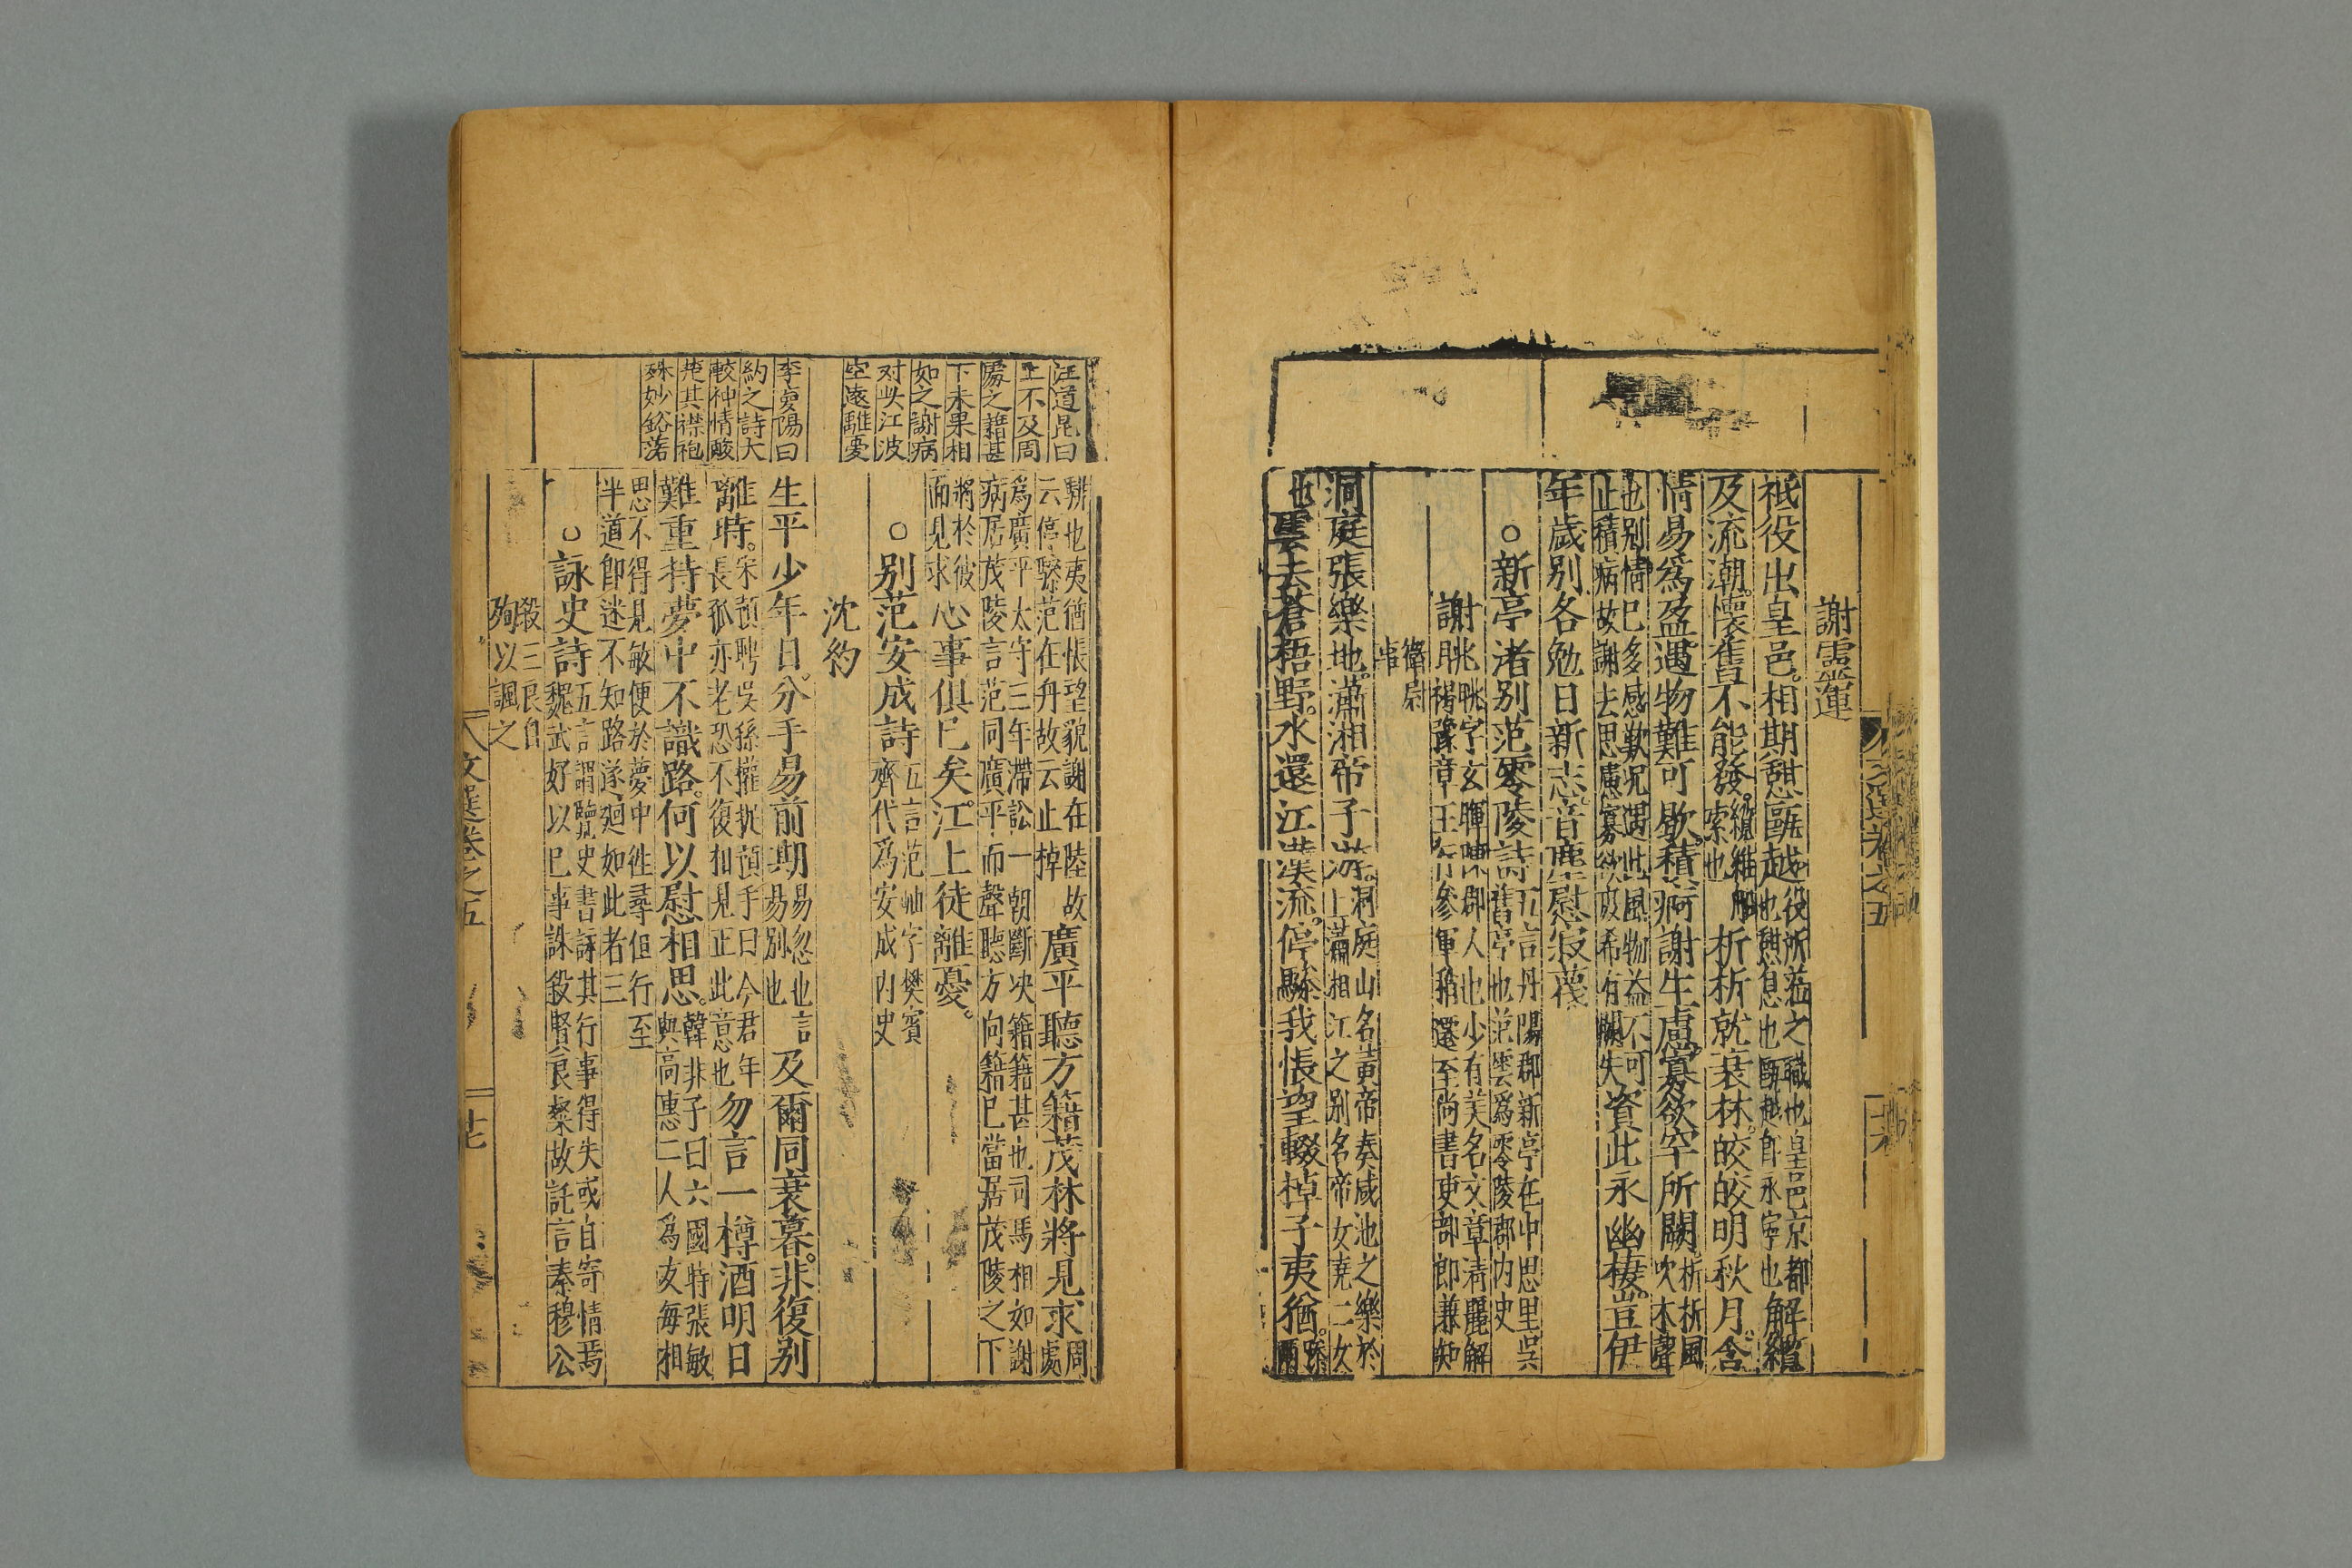 謝靈運
祗役出皇邑。相期憩甌越役所蒞之職也皇邑京都也憩息也甌越即永寧也解纜
及流潮。懷舊不能發。纜維船索也析析就衰林。皎皎明秋月。含
情易為盈遇物難可歇。積痾謝生慮。寡欲罕所闕。析析風吹木聲
也别情已多感歎况遇此風物益不可止積病故謝去思慮寡欲故希有闕失資此永幽棲。豈伊
年歲别各勉日新志音塵慰寂蔑
○新亭渚别范零陵詩五言丹陽郡新亭在中思里吳舊亭也范雲為零陵郡内史
謝朓朓字玄暉陳郡人也少有美名文章清麗解褐豫章王行參軍稍遷至尚書吏部郎兼知
衛尉事
洞庭張樂地。瀟湘帝子游。洞庭山名黃帝奏咸池之樂於上瀟湘江之别名帝女堯二女
也雲去蒼梧野。水還江漢流。停驂我悵望輟棹子夷猶。驂兩
文選卷之五
汪道昆曰
上不及周
處之籍甚
下未果相
如之謝病
对此江波
空遠離憂
李空陽曰
約之詩大
較神情酸
楚其襟袍
殊妙谿落
騑也夷猶悵望貌謝在陸故云停驂范在舟故云止棹廣平聽方籍茂林將見求周處
為廣平太守三年滯訟一朝斷决籍籍甚也司馬相如謝病居茂陵言范同廣平而聲聽方向籍已當居茂陵之下
將於彼面見求心事俱已矣。江上徒離憂。
○别范安成詩五言范岫字樊賓齊代為安成内史
沈約
生平少年日。分手易前期易忽也言易别也及爾同衰暮。非復别
離時。宋預聘吳孫權執預手曰今君年長孤亦老恐不復相見正此意也勿言一樽酒明日
難重持夢中不識路。何以慰相思。韓非子曰六國時張敏與高惠二人為友每相
思不得見敏便於夢中往尋但行至半道即迷不知路遂廻如此者三
○詠史詩五言謂覽史書詠其行事得失或自寄情焉魏武好以已事誅殺賢良粲故託言秦穆公
殺三良自殉以諷之
文選卷之五
廿七